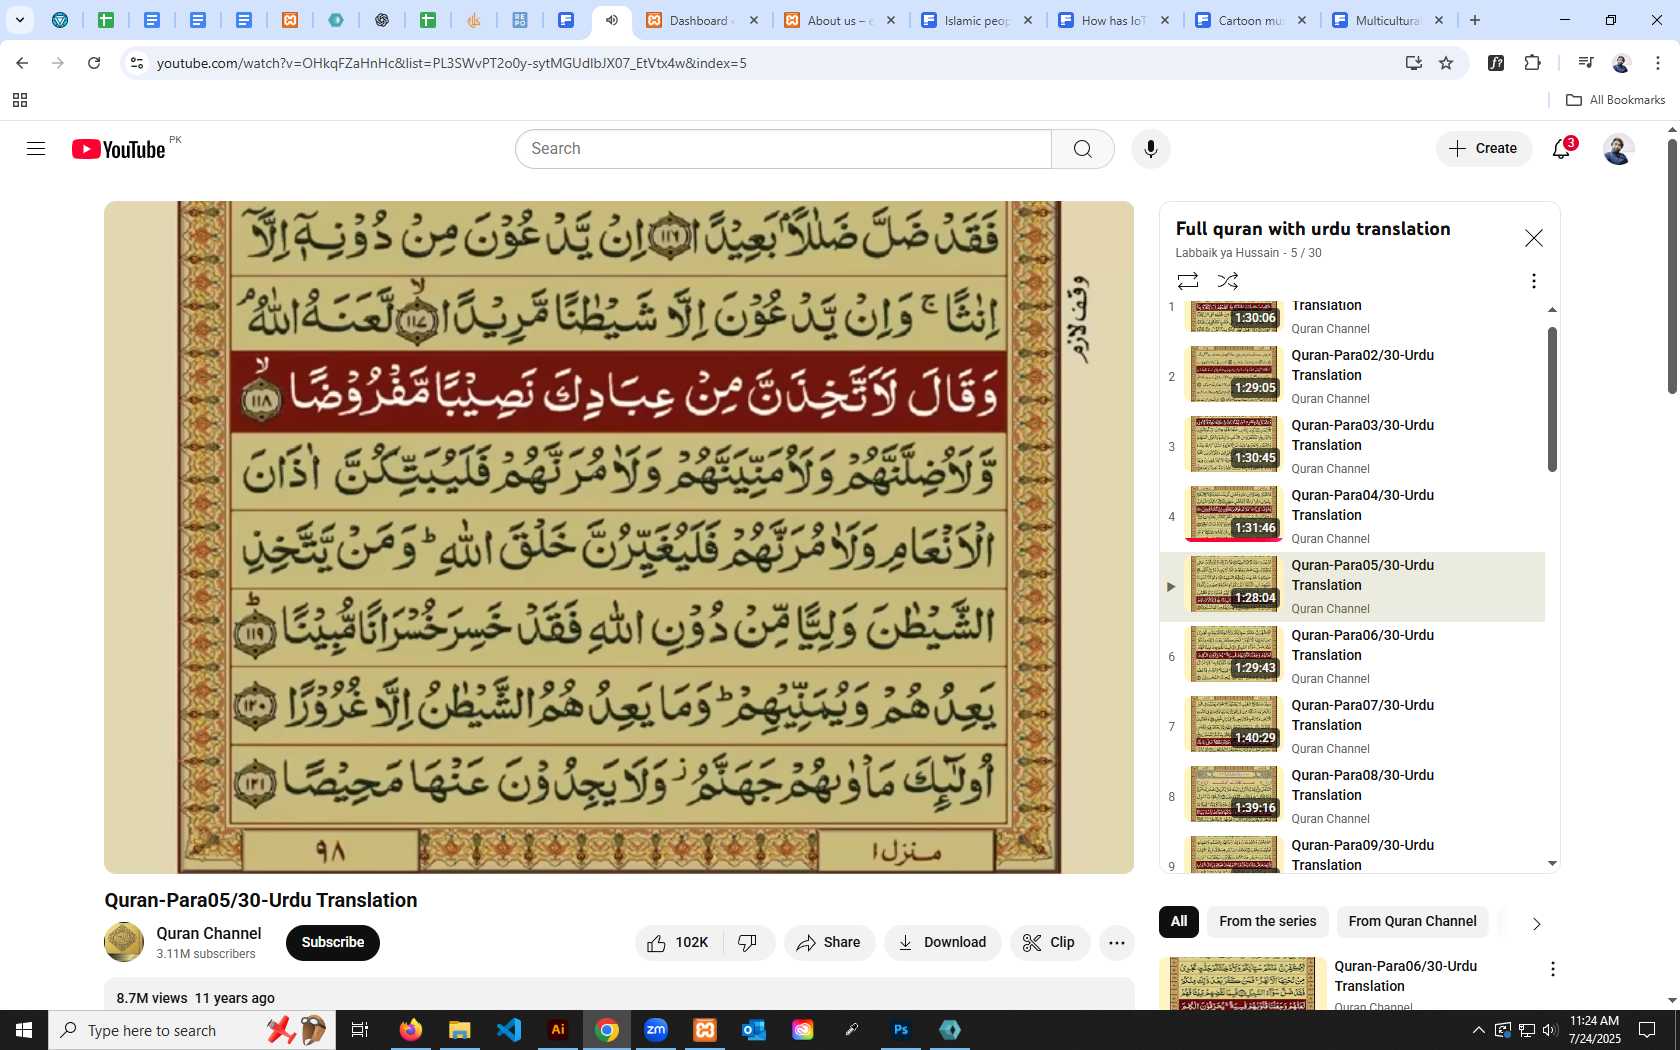 Dashboard
About us – e
Islamic peop
How has IoT
Cartoon mu
Multicultural
youtube.com/watch?v=OHkqFZaHnHc&list=PL3SWvPT2o0y-sytMGUdIbJX07_EtVtx4w&index=5
All Bookmarks
YouTube PK
Search
Create
3
فَقَدْ ضَلَّ ضَلٰلًاۢ بَعِيْدًا ۝۱۱۶ اِنْ يَّدْعُوْنَ مِنْ دُوْنِهٖۤ اِلَّاۤ
اِنٰثًا ۚ وَاِنْ يَّدْعُوْنَ اِلَّا شَيْطٰنًا مَّرِيْدًا ۝۱۱۷ۙ لَّعَنَهُ اللّٰهُ ۘ
وقف لازم
وَقَالَ لَاَتَّخِذَنَّ مِنْ عِبَادِكَ نَصِيْبًا مَّفْرُوْضًا ۝۱۱۸ۙ
وَّلَاُضِلَّنَّهُمْ وَلَاُمَنِّيَنَّهُمْ وَلَاٰمُرَنَّهُمْ فَلَيُبَتِّكُنَّ اٰذَانَ
الْاَنْعَامِ وَلَاٰمُرَنَّهُمْ فَلَيُغَيِّرُنَّ خَلْقَ اللّٰهِ ؕ وَمَنْ يَّتَّخِذِ
الشَّيْطٰنَ وَلِيًّا مِّنْ دُوْنِ اللّٰهِ فَقَدْ خَسِرَ خُسْرَانًا مُّبِيْنًا ۝۱۱۹ؕ
يَعِدُهُمْ وَيُمَنِّيْهِمْ ؕ وَمَا يَعِدُهُمُ الشَّيْطٰنُ اِلَّا غُرُوْرًا ۝۱۲۰
اُولٰٓئِكَ مَاْوٰىهُمْ جَهَنَّمُ ۫ وَلَا يَجِدُوْنَ عَنْهَا مَحِيْصًا ۝۱۲۱
منزل ۱
۹۸
Quran-Para05/30-Urdu Translation
Quran Channel
3.11M subscribers
Subscribe
102K
Share
Download
Clip
8.7M views 11 years ago
Full quran with urdu translation
Labbaik ya Hussain - 5 / 30
1
1:30:06
Translation
Quran Channel
2
1:29:05
Quran-Para02/30-Urdu
Translation
Quran Channel
3
1:30:45
Quran-Para03/30-Urdu
Translation
Quran Channel
4
1:31:46
Quran-Para04/30-Urdu
Translation
Quran Channel
1:28:04
Quran-Para05/30-Urdu
Translation
Quran Channel
6
1:29:43
Quran-Para06/30-Urdu
Translation
Quran Channel
7
1:40:29
Quran-Para07/30-Urdu
Translation
Quran Channel
8
1:39:16
Quran-Para08/30-Urdu
Translation
Quran Channel
9
Quran-Para09/30-Urdu
Translation
All
From the series
From Quran Channel
Quran-Para06/30-Urdu
Translation
Quran Channel
Type here to search
Ai
zm
Ps
11:24 AM
7/24/2025